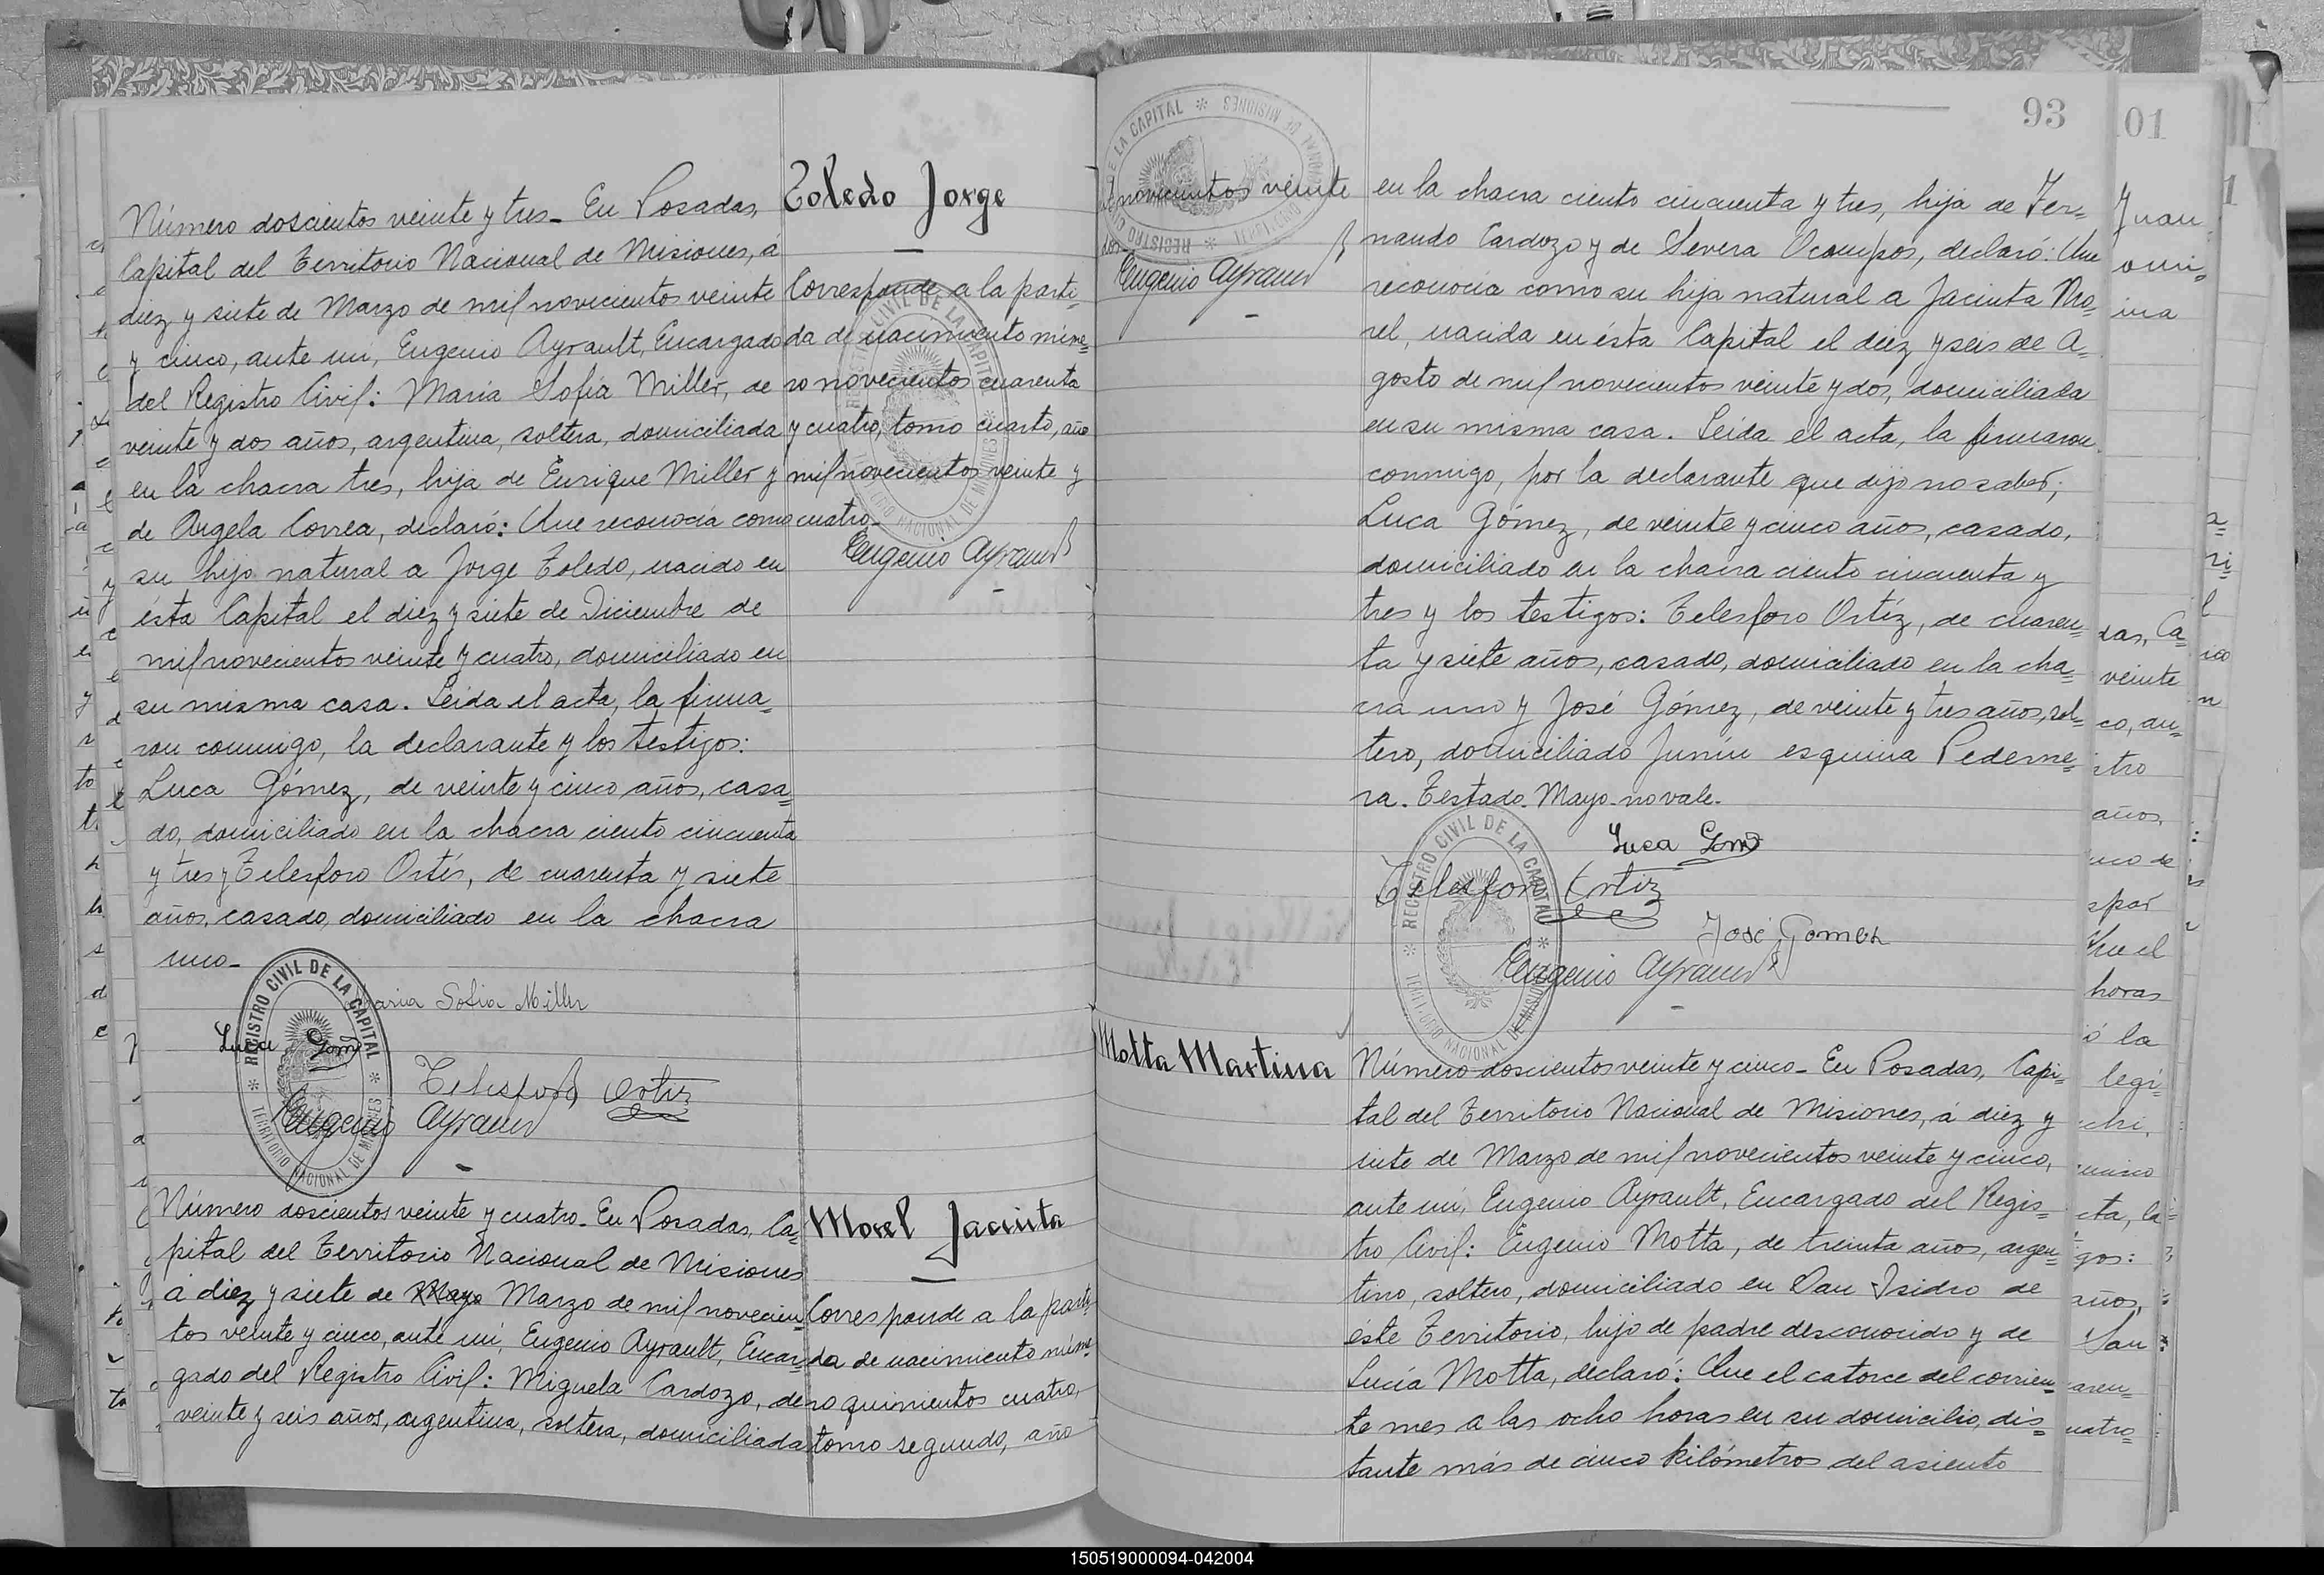 Número doscientos veinte y tres_ En Posadas,
Capital del Territorio Nacional de Misiones, á
diez y siete de Marzo de mil novecientos veinte
y cinco, ante mi, Eugenio Ayrault, Encargado
del Registro Civil: Maria Sofia Miller, de
veinte y dos años, argentina, soltera, domiciliada
en la chacra tres, hija de Enrique Miller y
de Angela Correa, declaró: Que reconocia como
su hijo natural a Jorge Toledo, nacido en
ésta Capital el diez y siete de Diciembre de
mil novecientos veinte y cuatro, domiciliado en
su misma casa. Leida el acta, la firma=
ron conmigo, la declarante y los testigos:
Luca Gómez, de veinte y cinco años, casa=
do, domiciliado en la chacra ciento cincuenta
y tres y Telesforo Ortís, de cuarenta y siete
años, casado, domiciliado en la chacra
uno_
Maria Sofia Miller
Luca Gomz
Telesforo Ortiz
Eugenio Ayrault
REGISTRO CIVIL DE LA CAPITAL
TERRITORIO NACIONAL DE MISIONES
Toledo Jorge
Corresponde a la parti=
da de nacimiento núme=
ro novecientos cuarenta
y cuatro, tomo cuarto, año
mil novecientos veinte y
cuatro_
Eugenio Ayrault
Número doscientos veinte y cuatro_ En Posadas, Ca=
pital del Territorio Nacional de Misiones
á diez y siete de Mayo Marzo de mil novecien=
tos veinte y cinco, ante mi, Eugenio Ayrault, Encar=
gado del Registro Civil: Miguela Cardozo, de
veinte y seis años, argentina, soltera, domiciliada
Morel Jacinta
Corresponde a la parti=
da de nacimiento núme=
ro quinientos cuatro,
tomo segundo, año
93
101
novecientos veinte
dos_
Eugenio Ayrault
en la chacra ciento cincuenta y tres, hija de Fer=
nando Cardozo y de Severa Ocampos, declaró: Que
reconocia como su hija natural a Jacinta Mo=
rel, nacida en ésta Capital el diez y seis de A=
gosto de mil novecientos veinte y dos, domiciliada
en su misma casa. Leida el acta, la firmaron
conmigo, por la declarante que dijo no saber;
Luca Gómez, de veinte y cinco años, casado,
domiciliado en la chacra ciento cincuenta y
tres y los testigos: Telesforo Ortíz, de cuaren=
ta y siete años, casado, domiciliado en la cha=
cra uno y José Gómez, de veinte y tres años, sol=
tero, domiciliado Junin esquina Pederne=
ra. Testado. Mayo_ no vale.
Luca Gomz
Telesforo Ortiz
José Gomez
Eugenio Ayrault
REGISTRO CIVIL DE LA CAPITAL
TERRITORIO NACIONAL DE MISIONES
Motta Martina
Número doscientos veinte y cinco_ En Posadas, Capi=
tal del Territorio Nacional de Misiones, á diez y
siete de Marzo de mil novecientos veinte y cinco,
ante mi, Eugenio Ayrault, Encargado del Regis=
tro Civil: Eugenio Motta, de treinta años, argen=
tino, soltero, domiciliado en San Isidro de
éste Territorio, hijo de padre desconocido y de
Lucía Motta, declaró: Que el catorce del corrien=
te mes a las ocho horas en su domicilio, dis=
tante más de cinco kilómetros del asiento
150519000094-042004